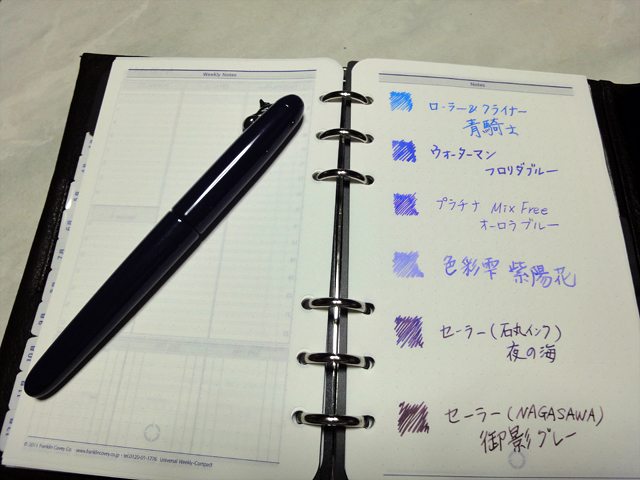 Weekly Notes
© 2011 Franklin Covey Co. www.franklincovey.co.jp
Universal Weekly-Compact
Notes
ローラー&クライナー
青騎士
ウォーターマン
フロリダブルー
プラチナ Mix Free
オーロラブルー
色彩雫 紫陽花
セーラー(石丸インク)
夜の海
セーラー(NAGASAWA)
御影グレー